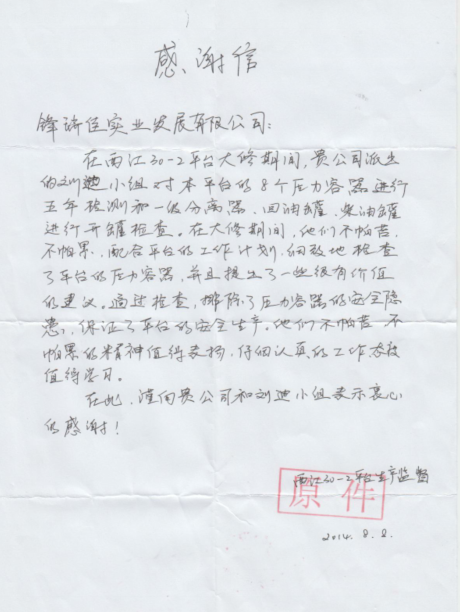 感谢信
锋许佳实业发展有限公司:
在西江30-2平台大修期间,贵公司派出
的刘迪小组对本平台的8个压力容器进行
五年检测和一级分离器、回油罐、柴油罐
进行开罐检查。在大修期间,他们不怕苦、
不怕累,配合平台的工作计划,细致地检查
了平台的压力容器,并且提出了一些很有价值
的建议。通过检查,排除了压力容器的安全隐
患,保证了平台的安全生产。他们不怕苦、不
怕累的精神值得表扬,仔细认真的工作态度
值得学习。
在此,谨向贵公司和刘迪小组表示衷心
的感谢!
西江30-2平台生产监督
原件
2014.8.2.